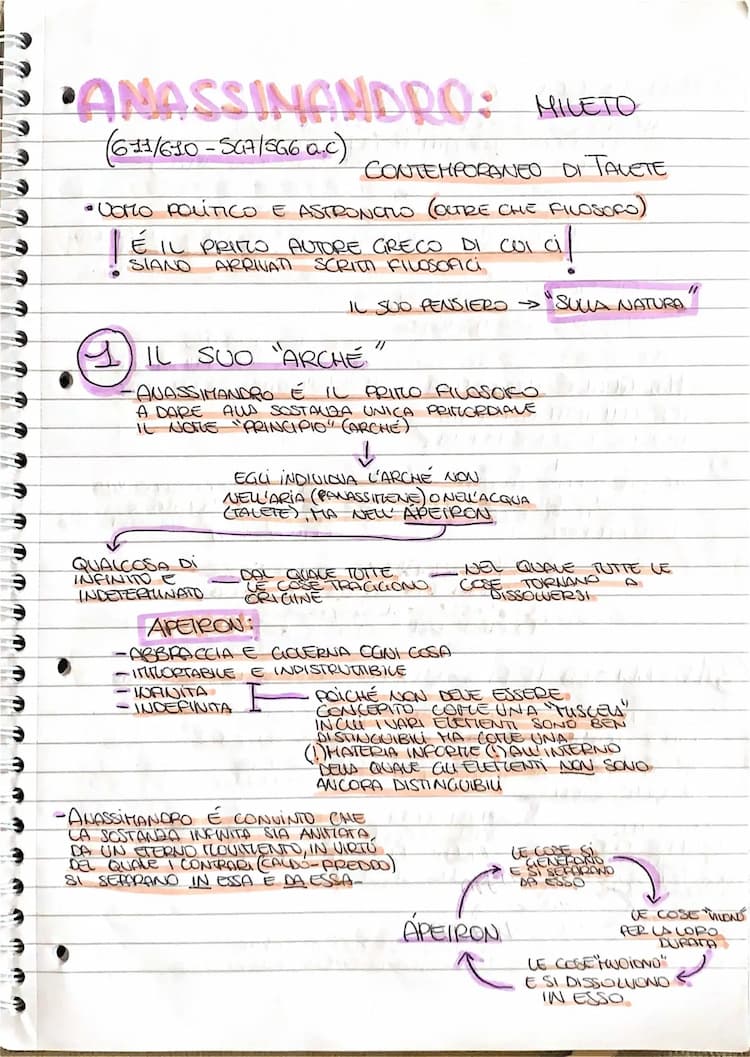 • ANASSIMANDRO: MILETO
(611/610 - 547/546 a.C)
CONTEMPORANEO DI TALETE
• UOMO POLITICO E ASTRONOMO (OLTRE CHE FILOSOFO)
! É IL PRIMO AUTORE GRECO DI CUI CI !
SIANO ARRIVATI SCRITTI FILOSOFICI.
IL SUO PENSIERO → "SULLA NATURA"
1 IL SUO "ARCHÉ"
- ANASSIMANDRO É IL PRIMO FILOSOFO
A DARE ALLA SOSTANZA UNICA PRIMORDIALE
IL NOME "PRINCIPIO" (ARCHÉ)
↓
EGLI INDIVIDUA L'ARCHÉ NON
NELL'ARIA (ANASSIMENE) O NELL'ACQUA
(TALETE), MA NELL'ÁPEIRON
QUALCOSA DI
INFINITO E
INDETERMINATO
— DAL QUALE TUTTE
LE COSE TRAGGONO
ORIGINE
— NEL QUALE TUTTE LE
COSE TORNANO A
DISSOLVERSI
APEIRON:
- ABBRACCIA E GOVERNA OGNI COSA
- IMMORTALE E INDISTRUTTIBILE
- INFINITA
- INDEFINITA
POICHÉ NON DEVE ESSERE
CONCEPITO COME UNA "MISCELA"
IN CUI I VARI ELEMENTI SONO BEN
DISTINGUIBILI MA COME UNA
(!) MATERIA INFORME (!) ALL'INTERNO
DELLA QUALE GLI ELEMENTI NON SONO
ANCORA DISTINGUIBILI
- ANASSIMANDRO É CONVINTO CHE
LA SOSTANZA INFINITA SIA ANIMATA
DA UN ETERNO MOVIMENTO, IN VIRTÙ
DEL QUALE I CONTRARI (CALDO-FREDDO)
SI SEPARANO IN ESSA E DA ESSA
LE COSE SI
GENERANO
E SI SEPARANO
DA ESSO
LE COSE "VIVONO"
PER LA LORO
DURATA
LE COSE "MUOIONO"
E SI DISSOLVONO
IN ESSO
ÁPEIRON